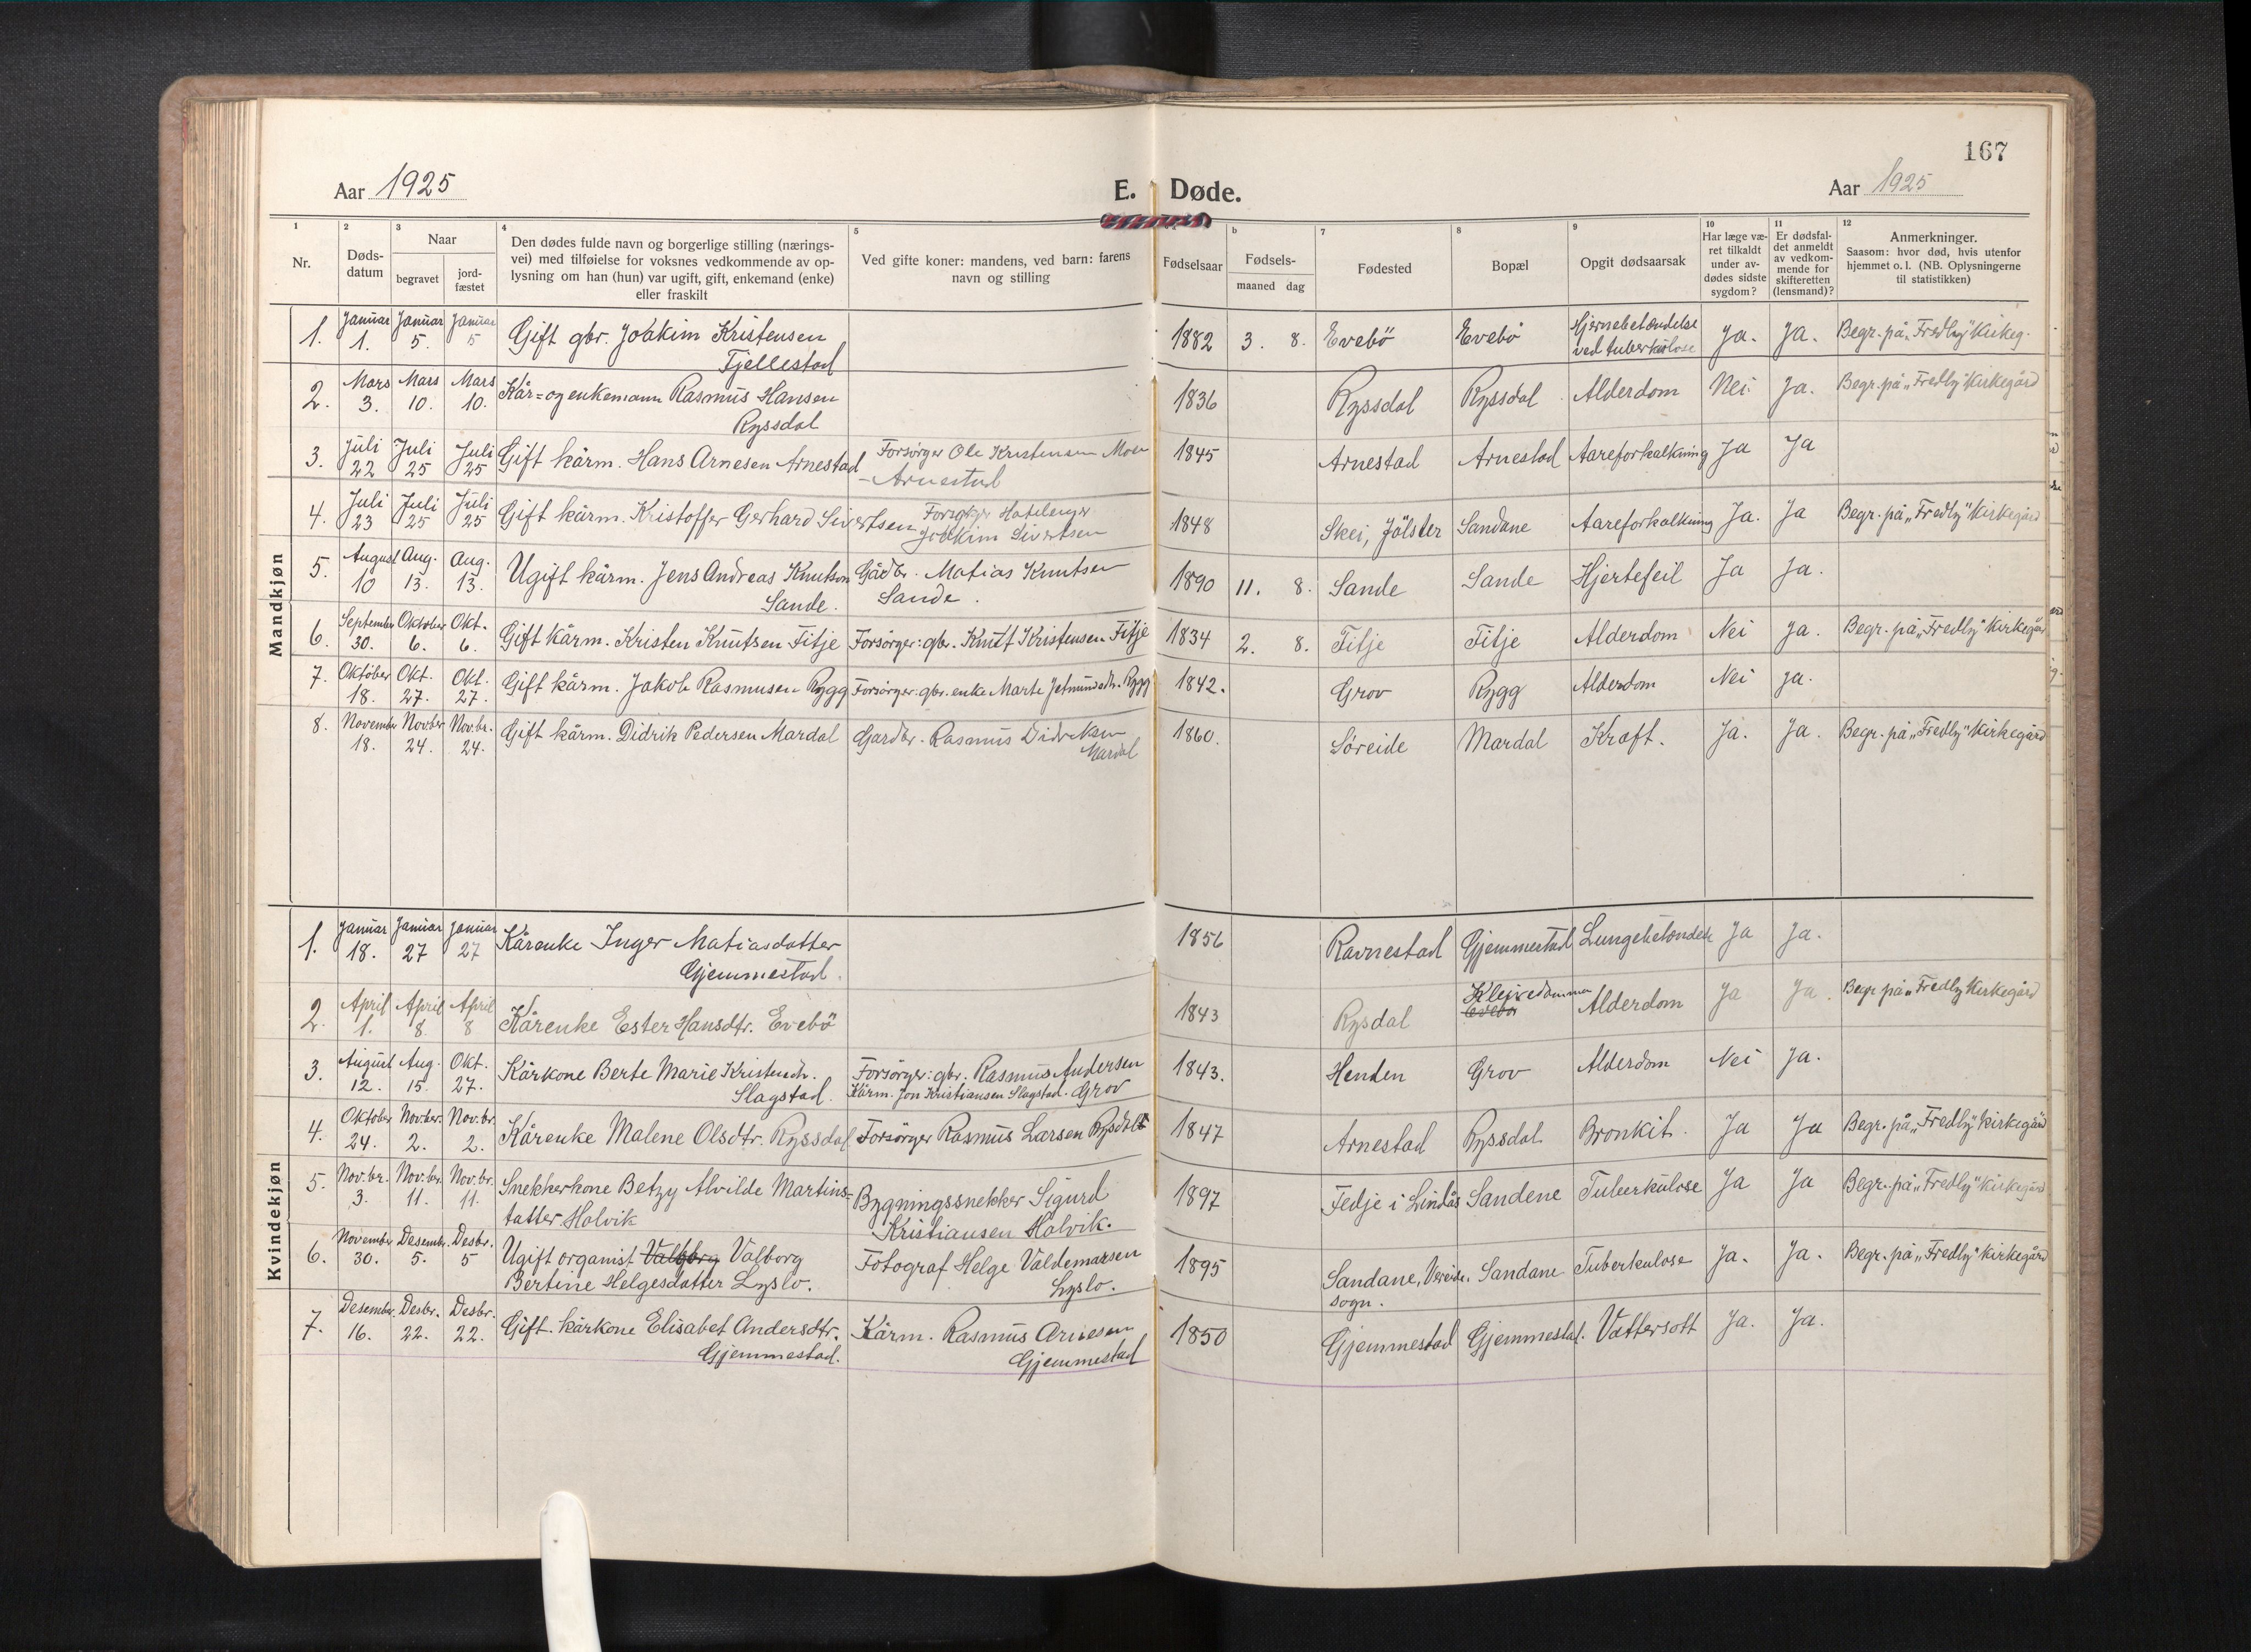 167
Aar 1925
E. Døde.
Aar 1925
1 2 3 4 5 b 7 8 9 10 11 12
Nr.
Døds-
datum
Naar
begravet
jord-
fæstet
Den dødes fulde navn og borgerlige stilling (nærings-
vei) med tilføielse for voksnes vedkommende av op-
lysning om han (hun) var ugift, gift, enkemand (enke)
eller fraskilt
Ved gifte koner: mandens, ved barn: farens
navn og stilling
Fødselsaar
Fødsels-
maaned dag
Fødested
Bopæl
Opgit dødsaarsak
Har læge væ-
ret tilkaldt
under av-
dødes sidste
sygdom?
Er dødsfal-
det anmeldt
av vedkom-
mende for
skifteretten
(lensmand)?
Anmerkninger.
Saasom: hvor død, hvis utenfor
hjemmet o. l. (NB. Oplysningerne
til statistikken)
Mandkjøn
1. Januar 1. Januar 5. Januar 5 Gift gbr. Joakim Kristensen
Fjellestad
1882 3. 8. Evebö Evebö Hjernebetændelse
ved tuberkulose
Ja. Ja. Begr. på "Fredly" Kirkeg.
2. Mars 3. Mars 10. Mars 10. Kår= og enkemann Rasmus Hansen
Ryssdal
1836 Ryssdal Ryssdal Alderdom Nei Ja. Begr. på "Fredly" Kirkegård
3. Juli 22 Juli 25 Juli 25 Gift kårm. Hans Arnesen Arnestad
Forsörger Ole Kristensen Moen
- Arnestad
1845 Arnestad Arnestad Aareforkalkning Ja Ja
4. Juli 23 Juli 25 Juli 25 Gift kårm. Kristoffer Gerhard Sivertsen
Forsörger Hoteleiger
Joakim Sivertsen
1848 Skei, Jölster Sandane Aareforkalkning Ja. Ja Begr. på "Fredly" Kirkegård
5. August 10 Aug. 13. Aug. 13. Ugift kårm. Jens Andreas Knutson
Sande.
Gådbr. Matias Knutsen
Sande.
1890 11. 8. Sande Sande Hjertefeil Ja Ja.
6. September 30. Oktober 6. Okt. 6. Gift kårm. Kristen Knutsen Fitje Forsörger: gbr. Knutt Kristensen Fitje
1834 2. 8. Fitje Fitje Alderdom Nei Ja. Begr. på "Fredly" Kirkegård
7. Oktober 18. Okt. 27. Okt. 27. Gift kårm. Jakob Rasmusen Rygg Forsörger: gbr. enke Marte Jetmundsdtr. Rygg
1842. Grov Rygg Alderdom Nei Ja.
8. November 18. Nov.ber 24. Nov.br. 24. Gift kårm. Didrik Pedersen Mardal Gardbr. Rasmus Didriksen
Mardal
1860. Söreide Mardal Kræft. Ja. Ja. Begr. på "Fredly" Kirkegård
Kvindekjøn
1. Januar 18. Januar 27 Januar 27 Kårenke Inger Matiasdatter
Gjemmestad.
1856 Ravnestad Gjemmestad Lungebetændelse Ja Ja.
2. April 1. April 8. April 8 Kårenke Ester Hansdtr. Evebö
1843 Rysdal Kleivedammen
Evebö
Alderdom Ja Ja. Begr. på "Fredly" Kirkegård
3. August 12. Aug. 15. Okt. 27. Kårkone Berte Marie Kristensdr.
Slagstad.
Forsörger: gbr. Rasmus Andersen
Kårm. Jon Kristiansen Slagstad. Grov
1843. Henden Grov Alderdom Nei Ja.
4. Oktober 24. Nov.ber. 2. Nov.br. 2. Kårenke Malene Olsdtr. Ryssdal Forsörger Rasmus Larsen Rysdal
1847 Arnestad Ryssdal Bronkit. Ja Ja Begr. på "Fredly" kirkegård
5. Nov.br. 3. Nov.br. 11. Nov.br. 11. Snekkerkone Betzy Alvilde Martins-
tatter Holvik
Bygningssnekker Sigurd
Kristiansen Holvik.
1897 Fedje i Lindås Sandene Tuberkulose Ja Ja Begr. på "Fredly" Kirkegård
6. November 30. Desembr. 5. Desbr. 5 Ugift organist Valborg Valborg
Bertine Helgesdatter Lyslo.
Fotograf Helge Valdemarsen
Lyslo.
1895 Sandane, Vereide
sogn.
Sandane Tuberkulose Ja. Ja. Begr. på "Fredly" Kirkegård
7. Desembr. 16. Desbr. 22. Desbr. 22. Gift. kårkone Elisabet Andersdtr.
Gjemmestad.
Kårm. Rasmus Arnesen
Gjemmestad
1850 Gjemmestad Gjemmestad. Vattersott Ja. Ja.